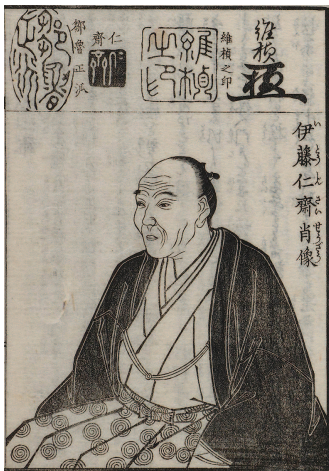 維楨
維楨之印
維楨之印
仁齋
鄒魯正派
伊藤仁齋肖像